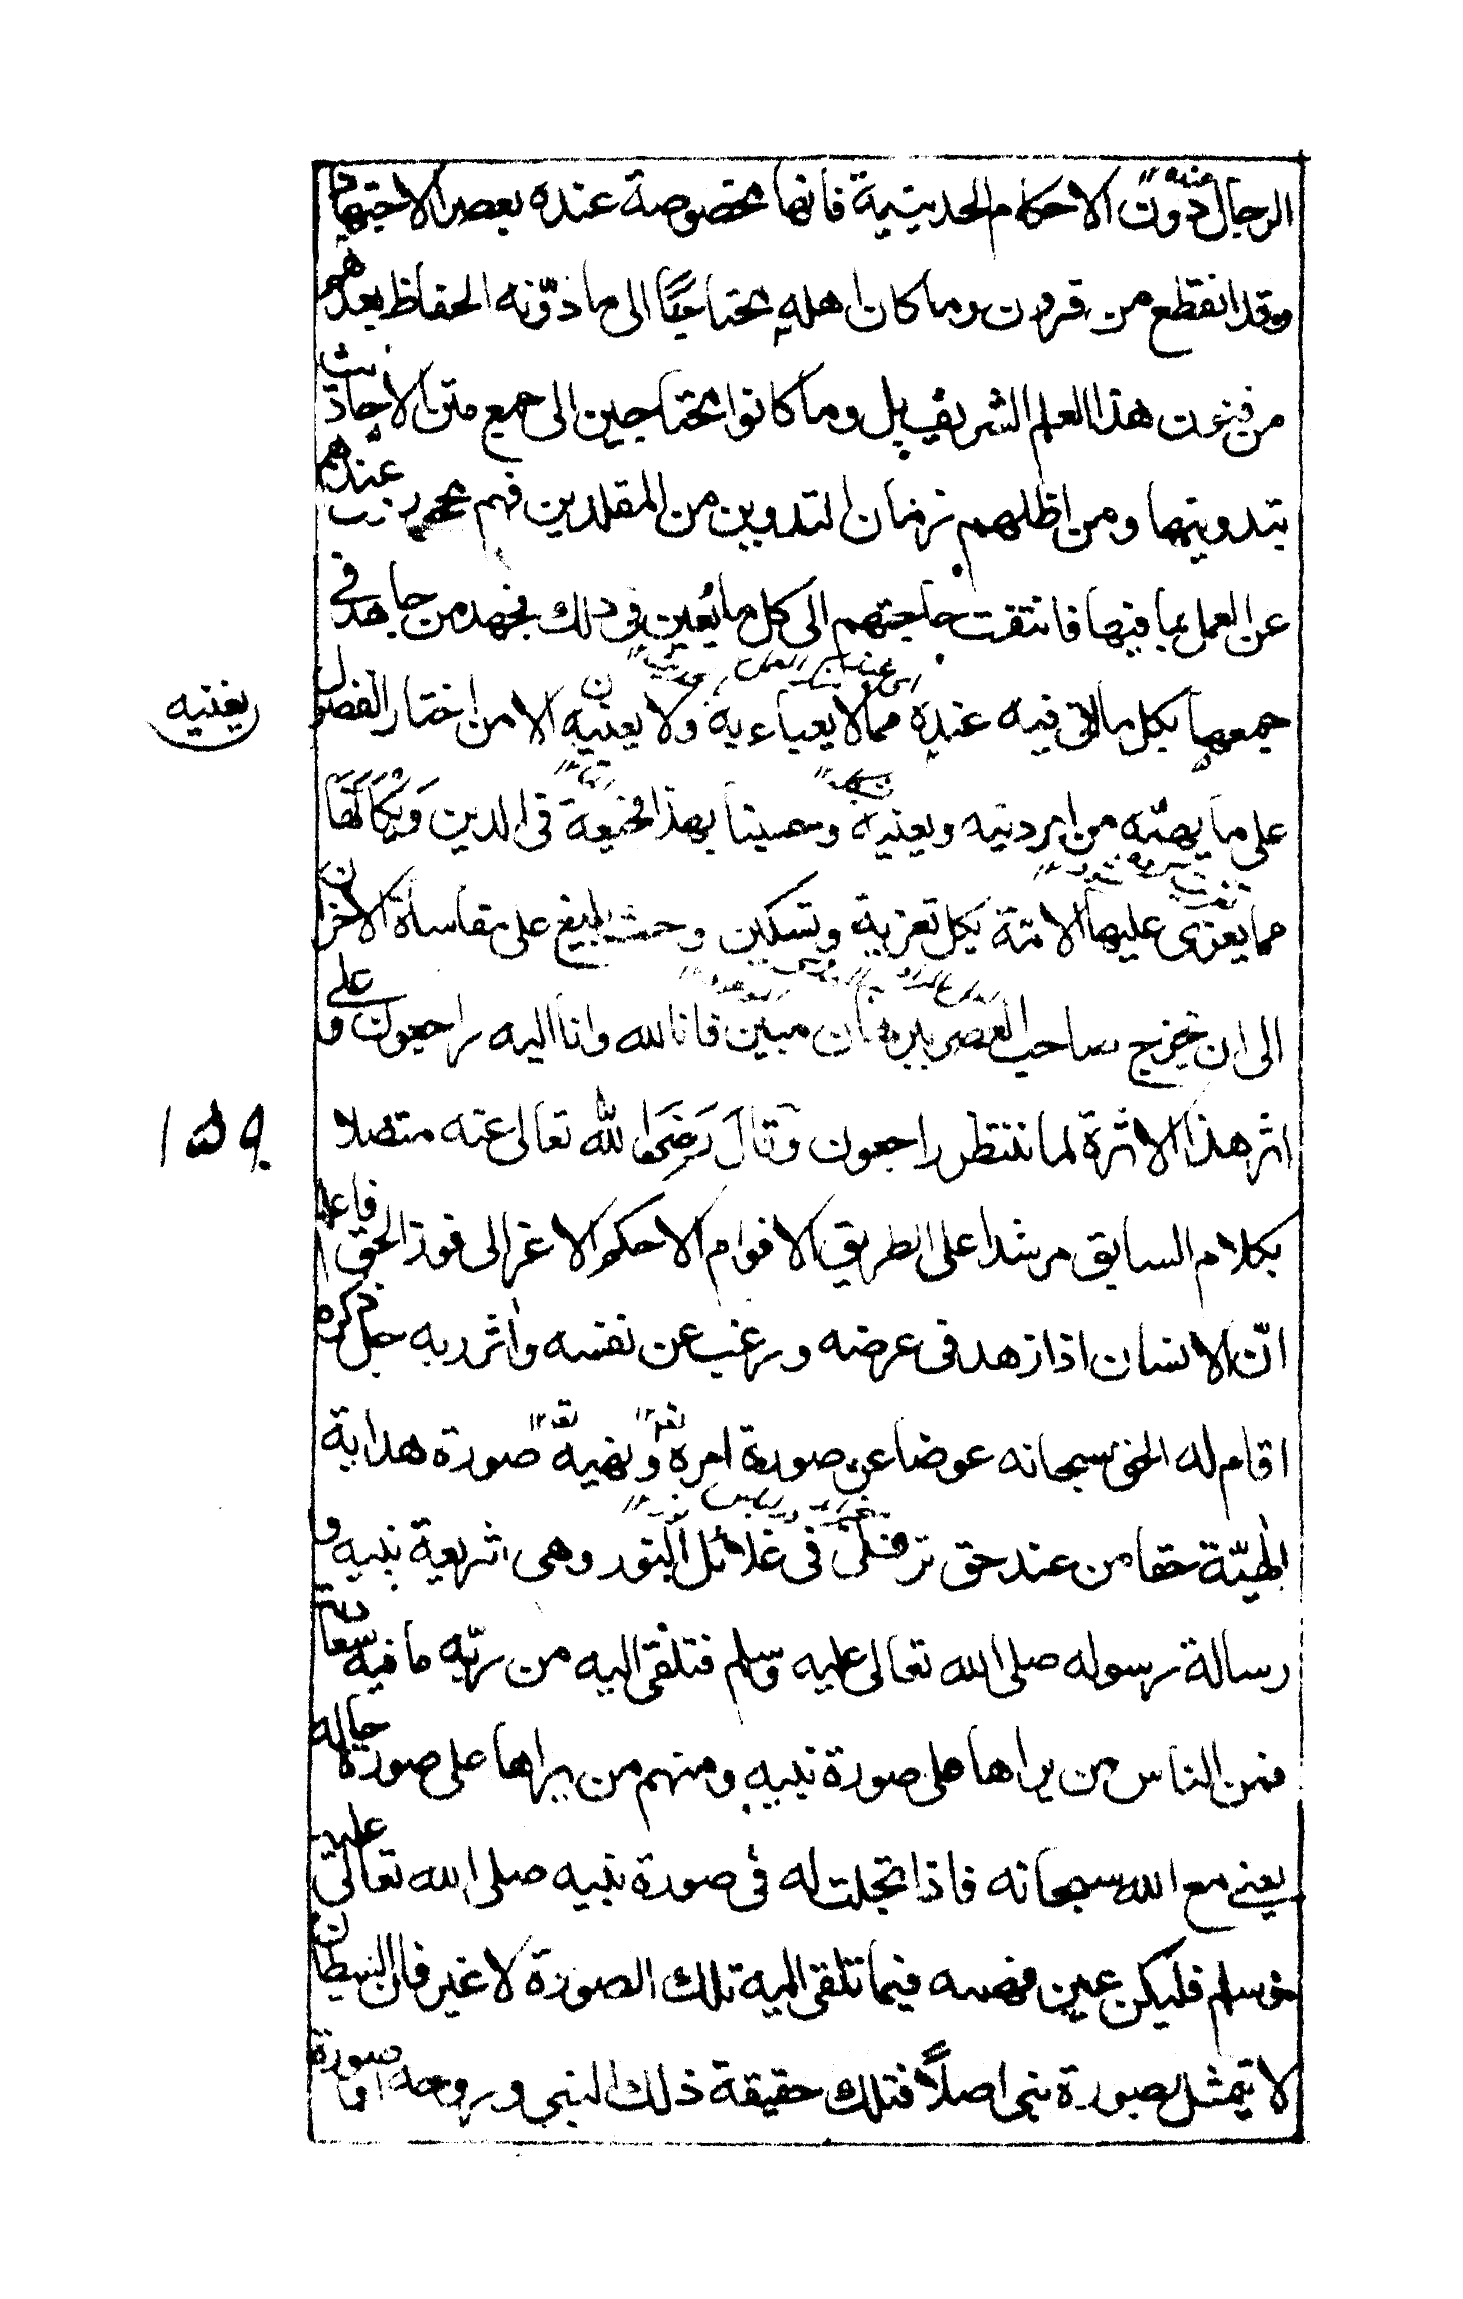 الرجال دون الاحكام الحديثية فانها مخصوصة عنده بعصر الاجتهاد
وقد انقطع من قرون وما كان اهله محتاجًا الى ما دوّنه الحفاظ بعدهم
من فنون هذا العلم الشريف بل وما كانوا محتاجين الى جمع متن الاحاديث
بتدوينها ومن اظلهم زمان التدوين من المقلدين فهم عندهم
عن العمل بما فيها فانتفت حاجتهم الى كل ما يُعين فى ذلك فجهد من جاهد فى
جمعها بكل مالاقى فيه عنده مما لا يعباء به ولا يعنيه الا من اختار الفضول
يغنيه
على ما يهمّه من امر دينه ويعنيه وحسبنا بهذا فى الدين
مما يعزى عليها الامة بكل تعزية وتسكين وحث بليغ على مقاساة الاحزان
الى ان يخرج صاحب العصر مبين فانا لله وانا اليه راجعون وعلى
اثر هذا الاثرة لما ننتظر راجعون وقال رضى الله تعالى عنه متصلا
١٥٩
بكلام السابق مرشدا على الطريق الاقوام الاحكم الاغر الى فوز الحق فاعلم
انّ الانسان اذا زهد فى عرضه ورغب عن نفسه واٰثر ربه جل ذكره
اقام له الحق سبحانه عوضا عن صورة امره ونهيه صورة هداية
الٰهيّة حقا من عند حق ترفل فى غلائل النور وهى شريعة نبيه و
رسالة رسوله صلى الله تعالى عليه وسلم فتلقى اليه من ربّه ما فيه سعادته
فمن الناس من يراها على صورة نبيه ومنهم من يراها على صورة حاله
يعنى مع الله سبحانه فاذا تجلت له فى صورة نبيه صلى الله تعالى عليه
وسلم فليكن عين فهمه فيما تلقى اليه تلك الصورة لا غير فان الشيطان
لا يتمثل بصورة نبى اصلاً فتلك حقيقة ذلك النبى وروحه او صورة